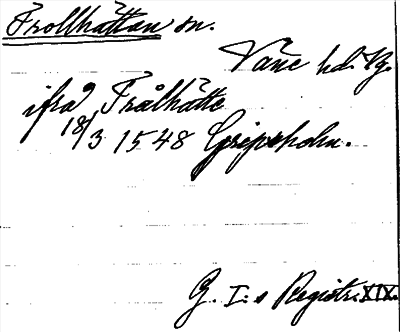 Trollhättan sn.
Väne hd. Vg.
ifrå Trålhätte
18/3 1548 Gripsholm.
G. I:s Registr. XIX.